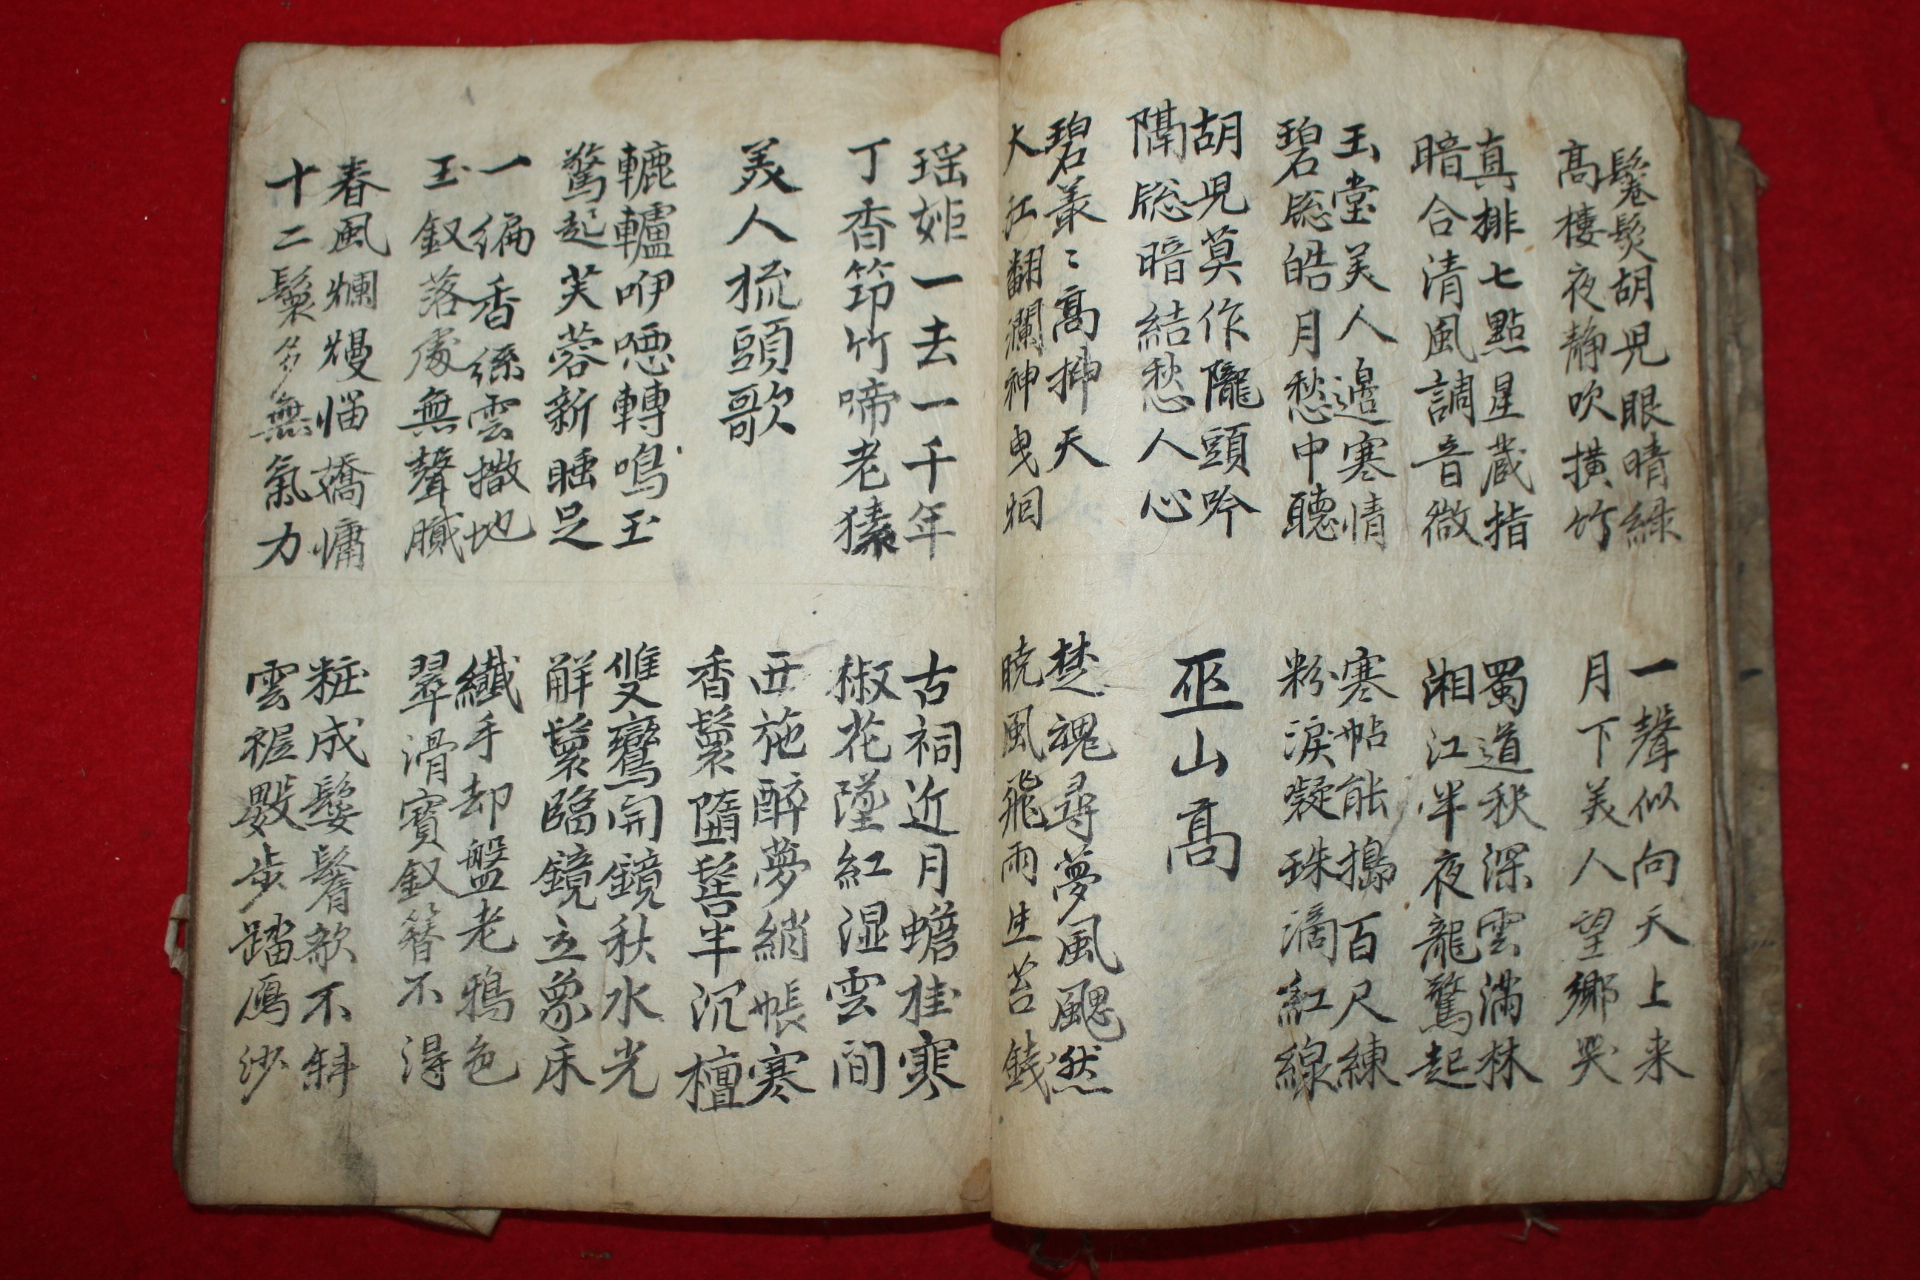 鬈髮胡兒眼晴綠
高樓夜静吹横竹
一聲似向天上来
月下美人望鄉哭
真排七點星蔵指
暗合清風調音微
蜀道秋深雲滿林
湘江半夜龍驚起
玉堂美人邊寒情
碧牕皓月愁中聽
寒帖能搗百尺練
粉淚凝珠滴紅線
胡兒莫作隴頭吟
隔牕暗結愁人心
巫山高
碧叢〻高揷天
大江翻瀾神曳烟
楚魂尋夢風颸然
曉風飛雨生苔錢
瑤姫一去一千年
丁香筇竹啼老猿
古祠近月蟾桂寒
椒花墜紅湿雲間
美人梳頭歌
西施醉夢綃帳寒
香鬟墮髻半沉檀
轆轤咿啞轉鳴玉
驚起芙蓉新睡足
雙鸞開鏡秋水光
解鬟臨鏡立象床
一編香絲雲撒地
玉釵落處無聲膩
纖手却盤老鴉色
翠滑寶釵簪不得
春風爛熳惱嬌慵
十二鬟多無氣力
粧成鬌欹不斜
雲裾數步踏鴈沙